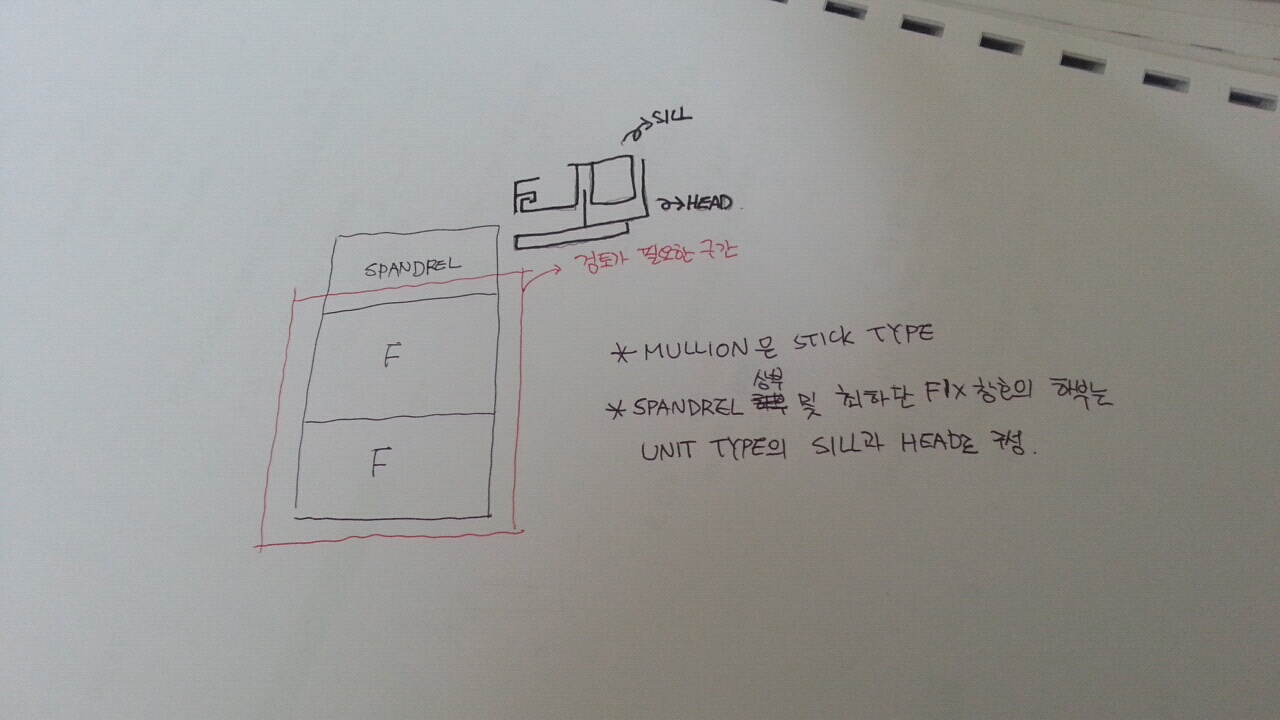 SILL
HEAD
SPANDREL
검토가 필요한 구간
F
F
* MULLION은 STICK TYPE
* SPANDREL 상부 및 최하단 FIX창호의 하부는
UNIT TYPE의 SILL과 HEAD로 구성.